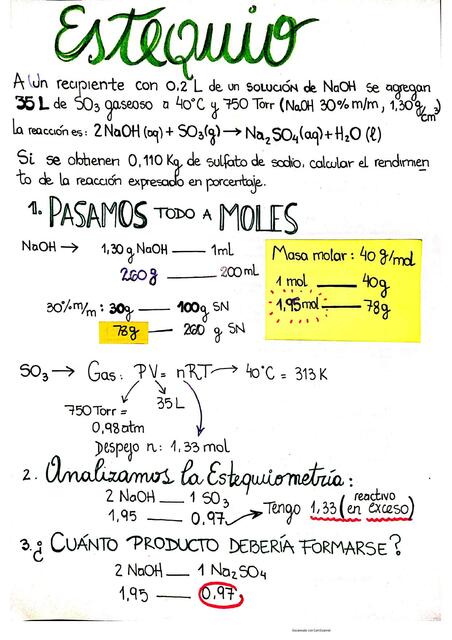 Estequio
A un recipiente con 0.2 L de un solución de NaOH se agregan
35 L de SO3 gaseoso a 40°C y 750 Torr (NaOH 30% m/m, 1,30 g/cm3)
la reacción es: 2 NaOH (aq) + SO3(g) → Na2SO4(aq) + H2O (l)
Si se obtienen 0,110 Kg de sulfato de sodio, calcular el rendimien
to de la reacción expresado en porcentaje.
1. PASAMOS TODO A MOLES
NaOH → 1,30 g NaOH — 1mL
260 g — 200 mL
30% m/m: 30g — 100g SN
78g — 260 g SN
Masa molar: 40 g/mol
1 mol — 40g
1,95 mol — 78g
SO3 → Gas: PV = nRT → 40°C = 313 K
750 Torr = 35 L
0,98 atm
Despejo n: 1,33 mol
2. Analizamos la Estequiometría:
2 NaOH — 1 SO3
1,95 — 0.97 → Tengo 1,33 (reactivo en exceso)
3. ¿CUÁNTO PRODUCTO DEBERÍA FORMARSE?
2 NaOH — 1 Na2SO4
1,95 — 0,97
Escaneado con CamScanner